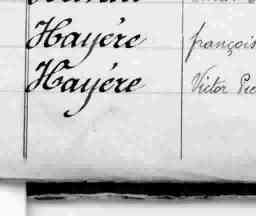 Hayére françois
Hayére Victor